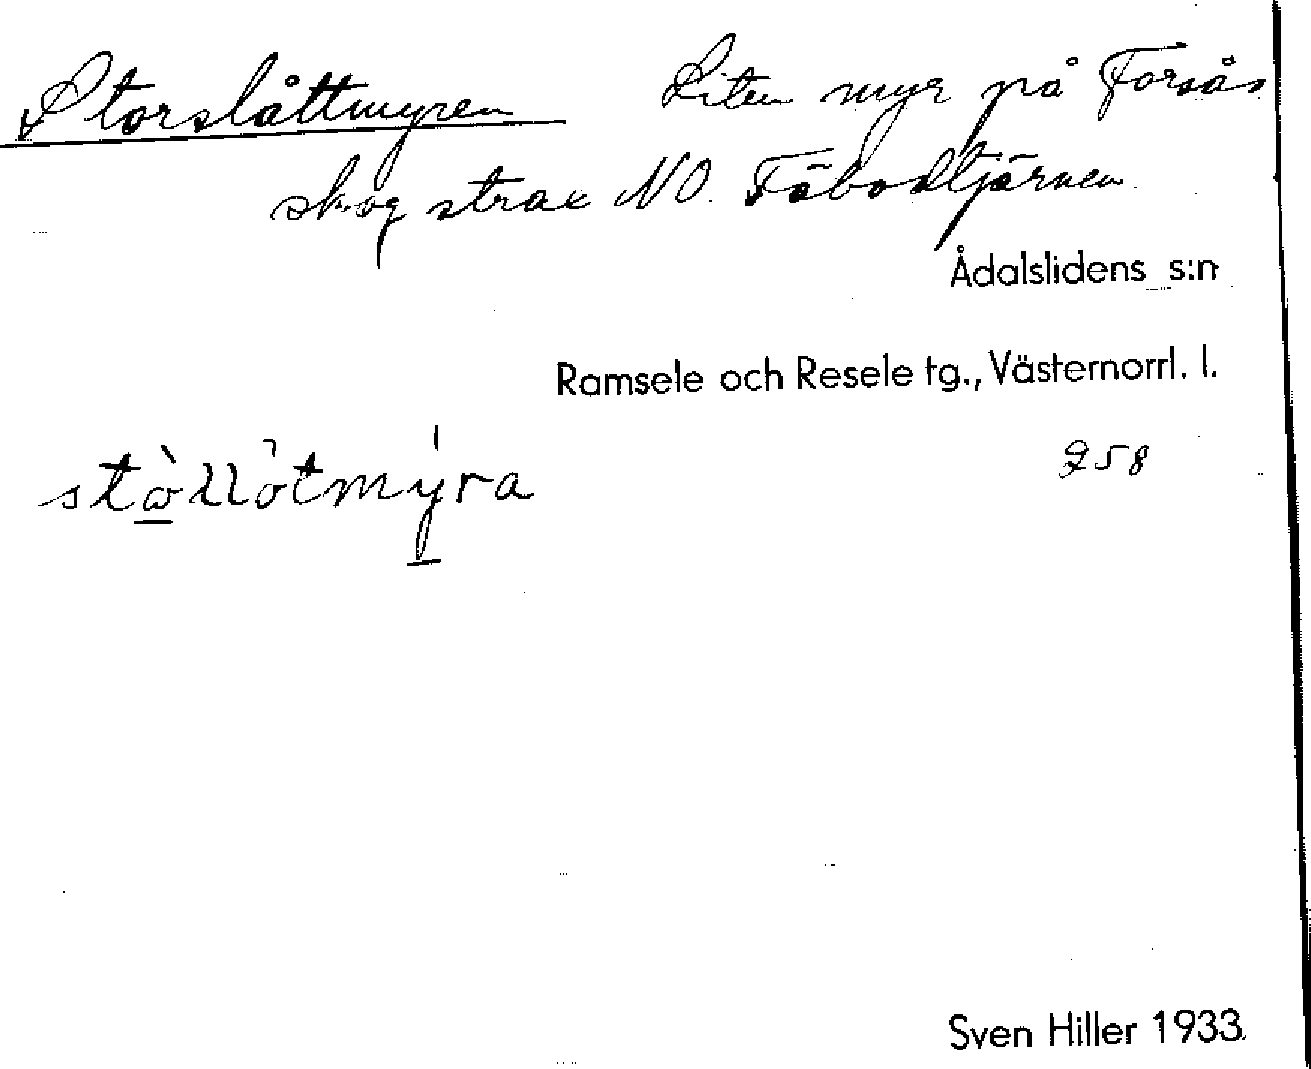 Storslåttmyren Liten myr på Forsås
skog strax NO. Fäbodtjärnen
Ådalslidens s:n
Ramsele och Resele tg., Västernorrl. l.
258
Sven Hiller 1933